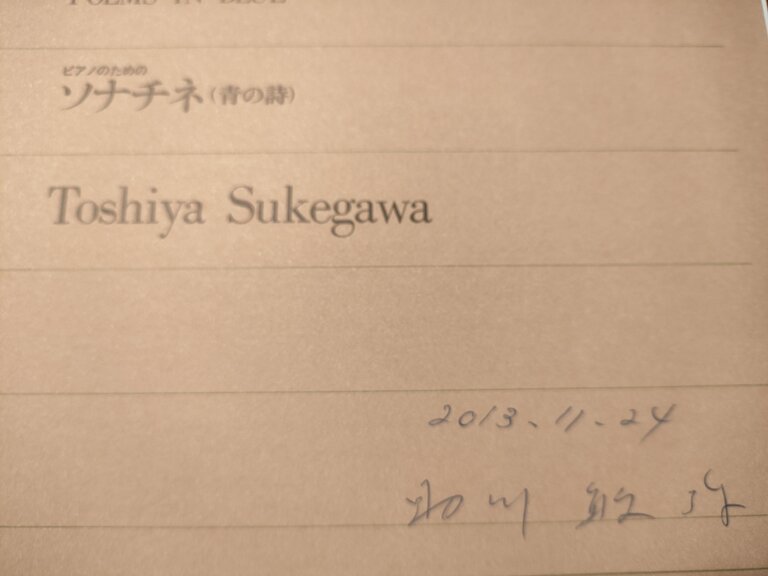 POEMS IN BLUE
ピアノのための
ソナチネ(青の詩)
Toshiya Sukegawa
2013.11.24
助川 敏弥